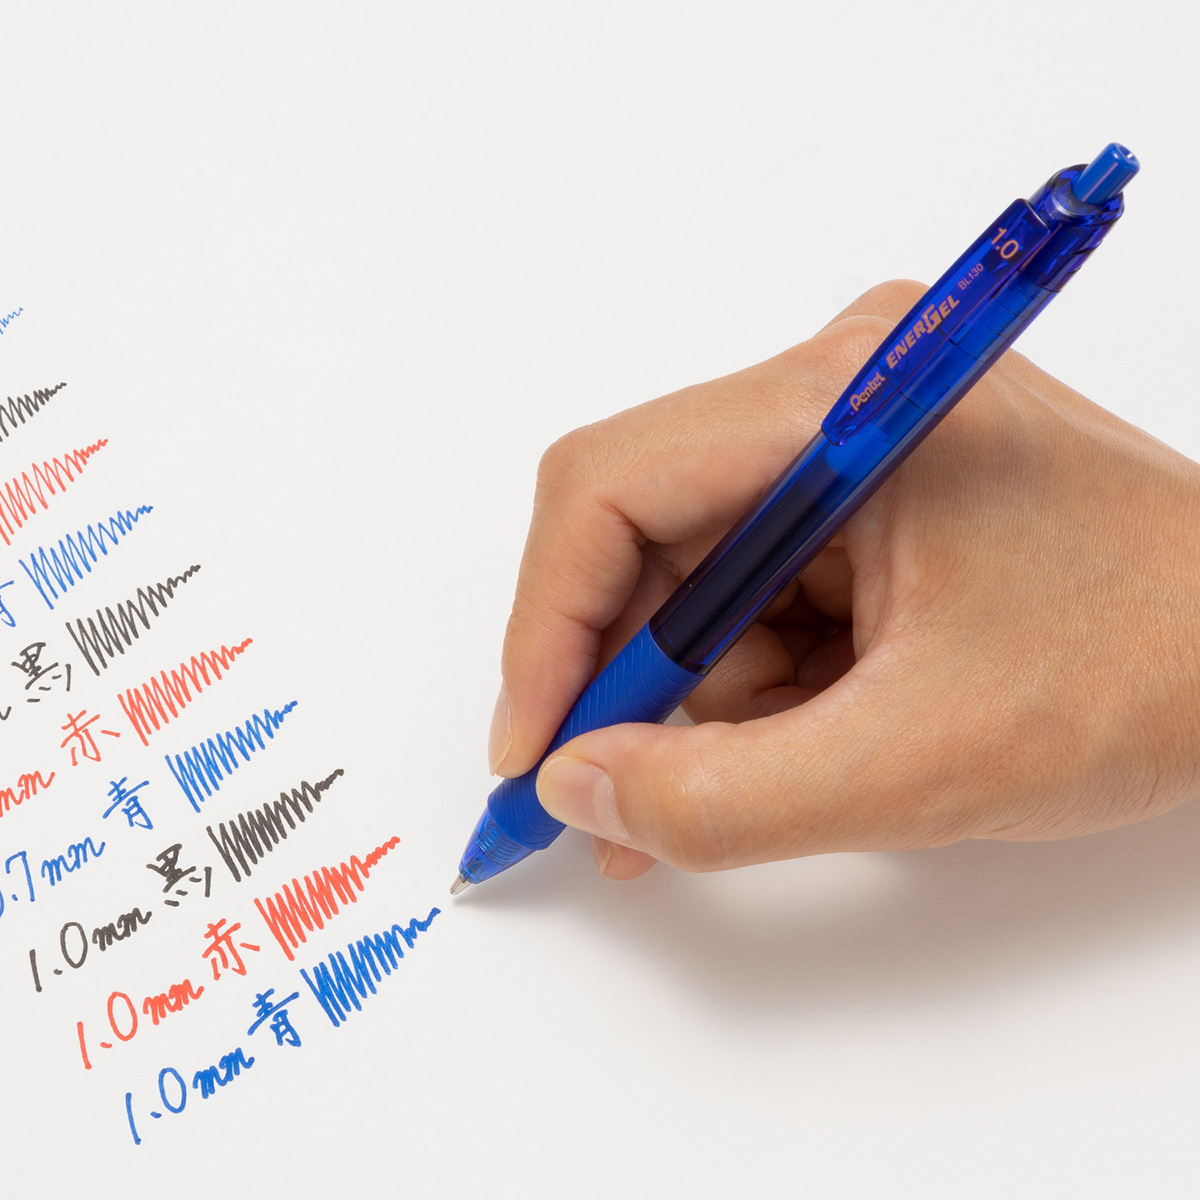 黒
mm 赤
0.7mm 青
1.0mm 黒
1.0mm 赤
1.0mm 青
Pentel ENERGEL BL130 1.0